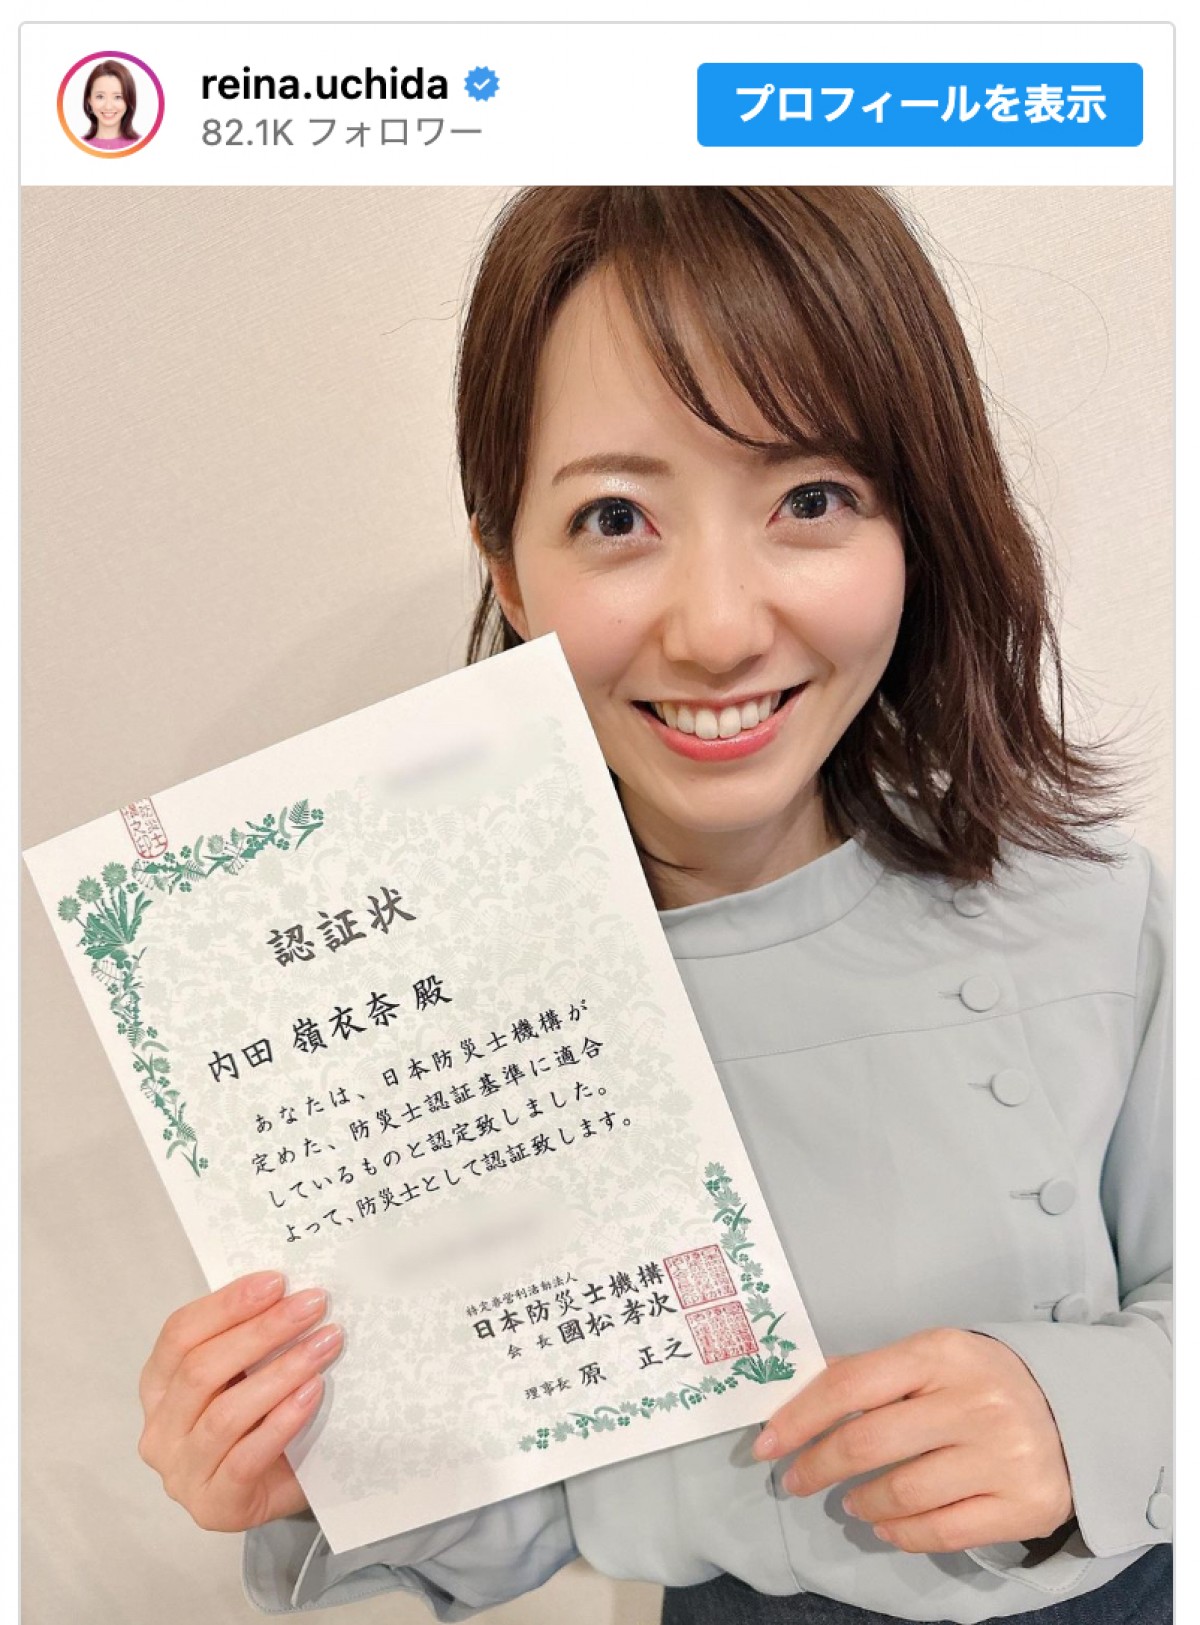 reina.uchida
82.1K フォロワー
プロフィールを表示
認証状
内田 嶺衣奈 殿
あなたは、日本防災士機構が
定めた、防災士認証基準に適合
しているものと認定致しました。
よって、防災士として認証致します。
特定非営利活動法人
日本防災士機構
会長 國松孝次
理事長 原 正之